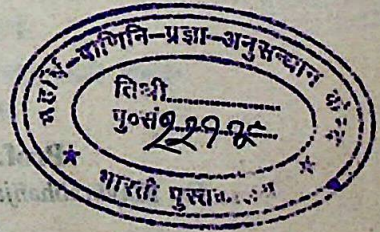 महर्षि-पाणिनि-प्रज्ञा-अनुसन्धान केन्द्र
तिथी..............
पु०सं०
भारती पुस्तकालय